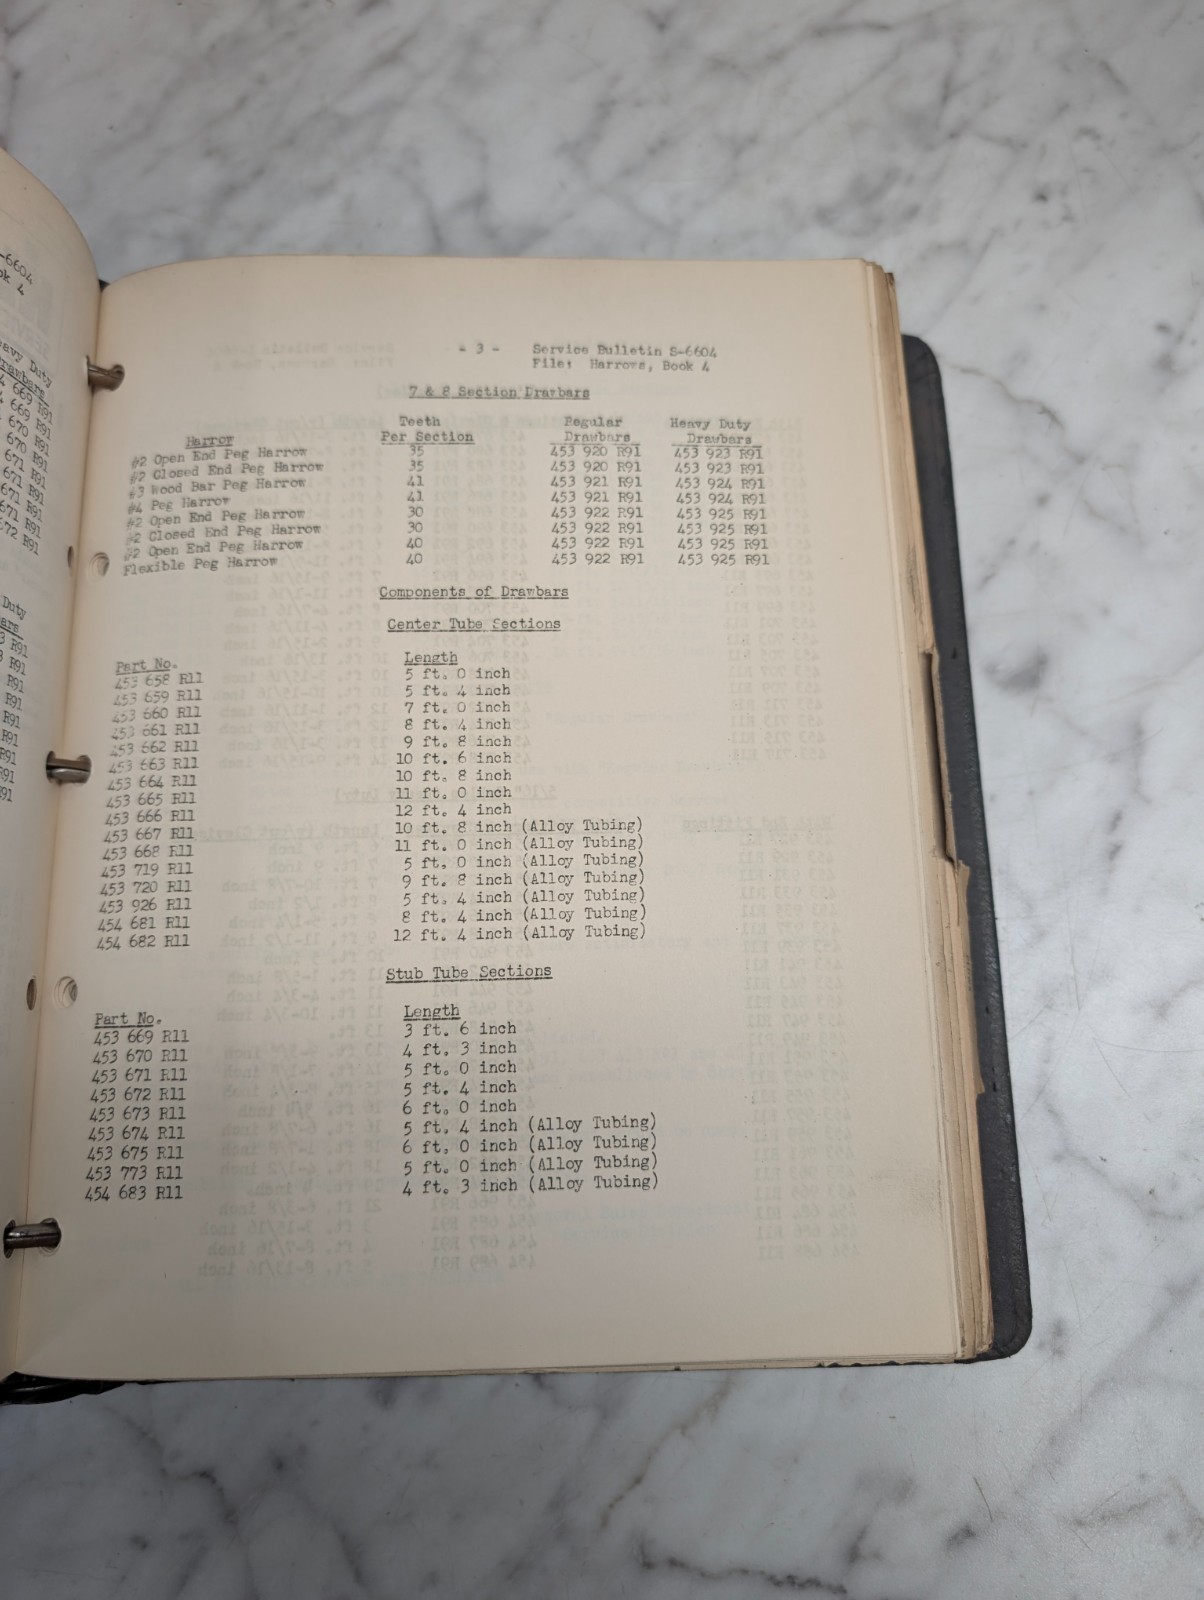 -6604
ok 4
eavy Duty
rawbars
4 669 R91
4 669 R91
670 R91
670 R91
671 R91
671 R91
671 R91
671 R91
672 R91
Duty
ars
3 R91
3 R91
R91
R91
R91
R91
R91
R91
91
- 3 - Service Bulletin S-6604
File: Harrows, Book 4
7 & 8 Section Drawbars
Harrow Teeth Per Section Regular Drawbars Heavy Duty Drawbars
#2 Open End Peg Harrow 35 453 920 R91 453 923 R91
#2 Closed End Peg Harrow 35 453 920 R91 453 923 R91
#3 Wood Bar Peg Harrow 41 453 921 R91 453 924 R91
#4 Peg Harrow 41 453 921 R91 453 924 R91
#2 Open End Peg Harrow 30 453 922 R91 453 925 R91
#2 Closed End Peg Harrow 30 453 922 R91 453 925 R91
#2 Open End Peg Harrow 40 453 922 R91 453 925 R91
Flexible Peg Harrow 40 453 922 R91 453 925 R91
Components of Drawbars
Center Tube Sections
Part No. Length
453 658 R11 5 ft. 0 inch
453 659 R11 5 ft. 4 inch
453 660 R11 7 ft. 0 inch
453 661 R11 8 ft. 4 inch
453 662 R11 9 ft. 8 inch
453 663 R11 10 ft. 6 inch
453 664 R11 10 ft. 8 inch
453 665 R11 11 ft. 0 inch
453 666 R11 12 ft. 4 inch
453 667 R11 10 ft. 8 inch (Alloy Tubing)
453 668 R11 11 ft. 0 inch (Alloy Tubing)
453 719 R11 5 ft. 0 inch (Alloy Tubing)
453 720 R11 9 ft. 8 inch (Alloy Tubing)
453 926 R11 5 ft. 4 inch (Alloy Tubing)
454 681 R11 8 ft. 4 inch (Alloy Tubing)
454 682 R11 12 ft. 4 inch (Alloy Tubing)
Stub Tube Sections
Part No. Length
453 669 R11 3 ft. 6 inch
453 670 R11 4 ft. 3 inch
453 671 R11 5 ft. 0 inch
453 672 R11 5 ft. 4 inch
453 673 R11 6 ft. 0 inch
453 674 R11 5 ft. 4 inch (Alloy Tubing)
453 675 R11 6 ft. 0 inch (Alloy Tubing)
453 773 R11 5 ft. 0 inch (Alloy Tubing)
454 683 R11 4 ft. 3 inch (Alloy Tubing)